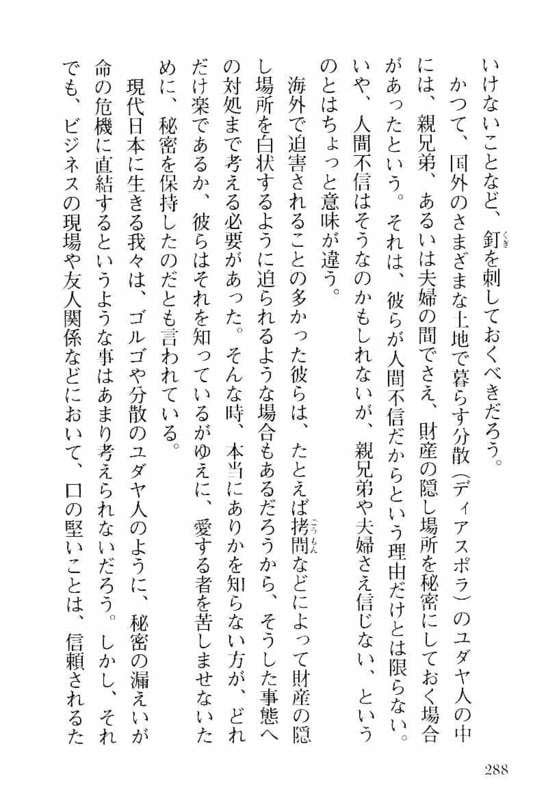 いけないことなど、釘を刺しておくべきだろう。
かつて、国外のさまざまな土地で暮らす分散（ディアスポラ）のユダヤ人の中
には、親兄弟、あるいは夫婦の間でさえ、財産の隠し場所を秘密にしておく場合
があったという。それは、彼らが人間不信だからという理由だけとは限らない。
いや、人間不信はそうなのかもしれないが、親兄弟や夫婦さえ信じない、という
のとはちょっと意味が違う。
海外で迫害されることの多かった彼らは、たとえば拷問などによって財産の隠
し場所を白状するように迫られるような場合もあるだろうから、そうした事態へ
の対処まで考える必要があった。そんな時、本当にありかを知らない方が、どれ
だけ楽であるか、彼らはそれを知っているがゆえに、愛する者を苦しませないた
めに、秘密を保持したのだとも言われている。
現代日本に生きる我々は、ゴルゴや分散のユダヤ人のように、秘密の漏えいが
命の危機に直結するというような事はあまり考えられないだろう。しかし、それ
でも、ビジネスの現場や友人関係などにおいて、口の堅いことは、信頼されるた
288